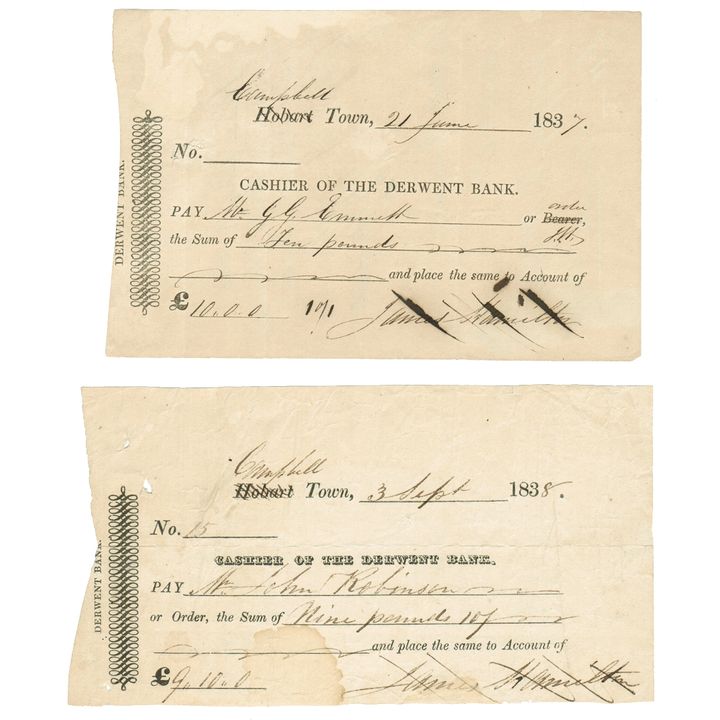 Campbell
Hobart Town, 21 June 1837.
No.
DERWENT BANK.
CASHIER OF THE DERWENT BANK.
order
PAY Mr G G Emmett or Bearer,
the Sum of Ten pounds
and place the same to Account of
£ 10.0.0
James Hamilton
Campbell
Hobart Town, 3 Sept 1838.
No. 15
DERWENT BANK.
CASHIER OF THE DERWENT BANK.
PAY Mr John Robinson
or Order, the Sum of Nine pounds 10/
and place the same to Account of
£ 9.10.0
James Hamilton